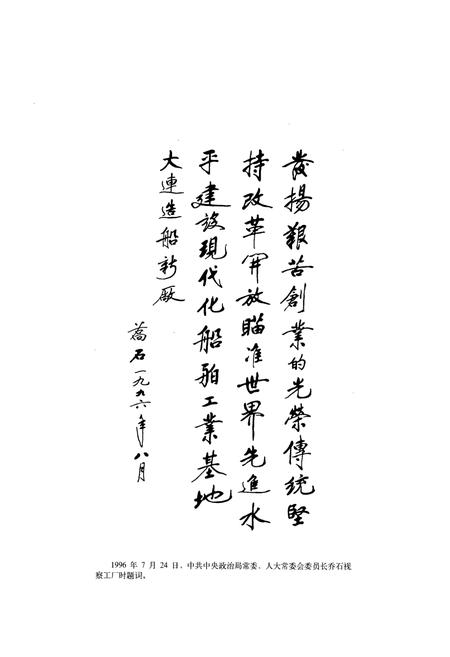 發揚艰苦創業的光榮傳統堅
持改革開放瞄准世界先進水
平建設現代化船舶工業基地
大連造船新厰
喬石一九九六年八月
1996 年 7 月 24 日、中共中央政治局常委、人大常委会委员长乔石视
察工厂时题词。